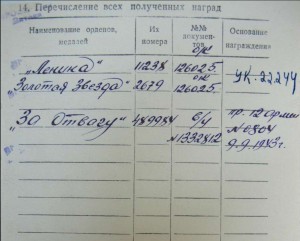 14. Перечисление всех полученных наград
Наименование орденов, медалей
Их номера
№№ докумен-тов
Основание награждения
„Ленина"
11238
126025
„Золотая Звезда"
2679
126025
УК. 22244
„За Отвагу"
489984
б/у
№1332812
пр. 12 армии
№0804
9.9.1943г.